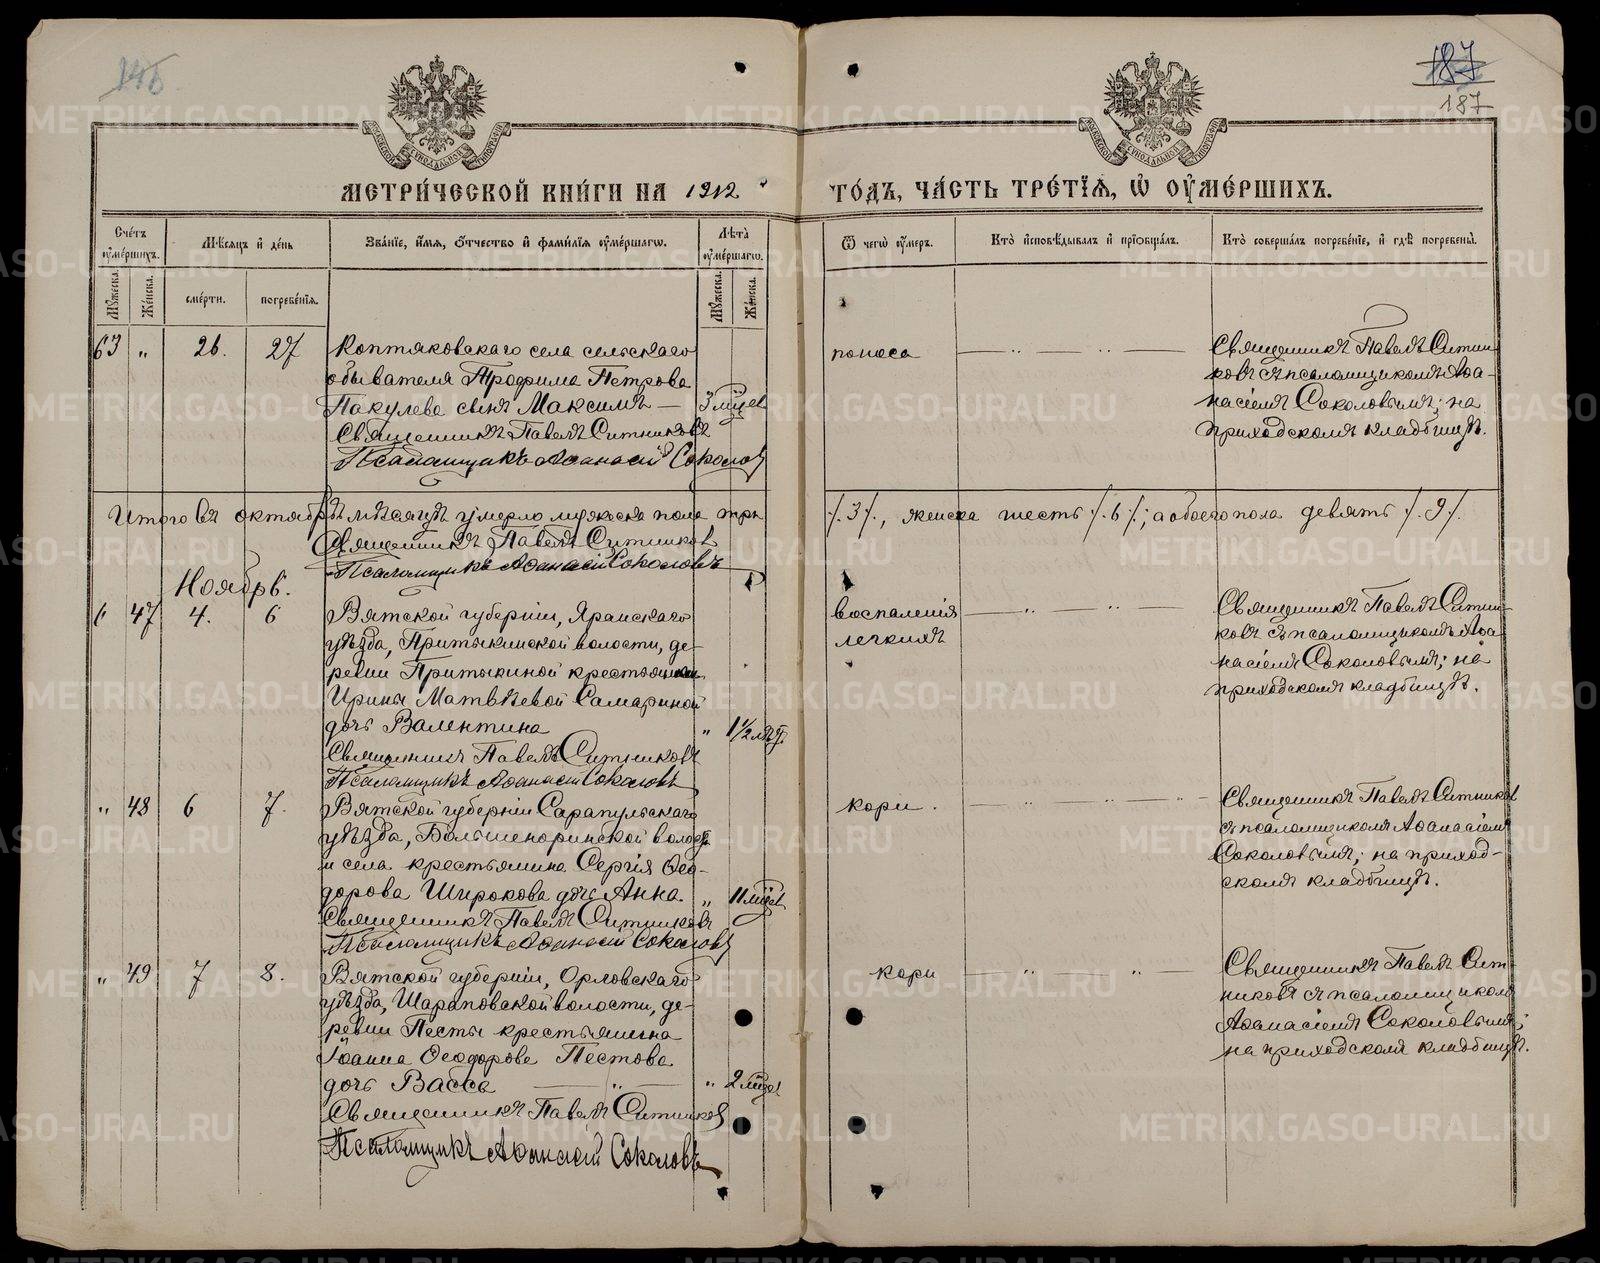 146
187
187
МЕТРИ́ЧЕСКОЙ КНИ́ГИ НА 1912
ГО́ДЪ, ЧА́СТЬ ТРЕ́ТІѦ, Ѡ ОУМЕ́РШИХЪ.
Сче́тъ оуме́ршихъ.
Мѣ́сяцъ и де́нь
Зва́ніе, и́мѧ, о́тчество и фами́лїѧ оуме́ршагѡ.
Лѣта̀ оуме́ршагѡ.
Ѿ чегѡ̀ оу́меръ.
Кто̀ исповѣ́дывалъ и прїѡбща́лъ.
Кто̀ соверша́лъ погребе́нїе, и гдѣ̀ погребены̀.
Мꙋ́жеска.
Же́нска.
сме́рти.
погребе́нїѧ.
Мꙋ́жеска.
Же́нска.
63 " 26. 27
Коптяковскаго села сельскаго
обывателя Трофима Петрова
Пакулева сынъ Максимъ — 3 мѣсц.
Священникъ Павелъ Ситниковъ
Псаломщикъ Аѳанасій Соколовъ
поноса
Священникъ Павелъ Ситни-
ковъ съ псаломщикомъ Аѳа-
насіемъ Соколовымъ; на
приходскомъ кладбищѣ.
Итого въ октябрѣ мѣсяцѣ умерло мужеска пола три
/.3/., женска шесть /.6/.; а обоего пола девять /.9/.
Священникъ Павелъ Ситников
Псаломщикъ Аѳанасій Соколовъ
Ноябрь.
47 4. 6
Вятской губерніи, Яранскаго
уѣзда, Притыкинской волости, де-
ревни Притыкиной крестьянки
Ирины Матвѣевой Самариной
дочь Валентина " 1 1/2 лѣт.
Священникъ Павелъ Ситниковъ
Псаломщикъ Аѳанасій Соколовъ
воспаленія
легкихъ
Священникъ Павелъ Ситни-
ковъ съ псаломщикомъ Аѳа-
насіемъ Соколовымъ; на
приходскомъ кладбищѣ.
" 48 6 7.
Вятской губерніи Сарапульскаго
уѣзда, Большеноринской волости
и села крестьянина Сергія Ѳео-
дорова Широкова дочь Анна. " 11 мѣсц.
Священникъ Павелъ Ситниковъ
Псаломщикъ Аѳанасій Соколовъ
кори.
Священникъ Павелъ Ситников
съ псаломщикомъ Аѳанасіемъ
Соколовымъ; на приход-
скомъ кладбищѣ.
" 49 7 8.
Вятской губерніи, Орловскаго
уѣзда, Шараповской волости, де-
ревни Песты крестьянина
Іоанна Ѳеодорова Пестова
дочь Васса " 2 мѣсц.
Священникъ Павелъ Ситников
Псаломщикъ Аѳанасій Соколовъ
кори
Священникъ Павелъ Сит-
никовъ съ псаломщикомъ
Аѳанасіемъ Соколовымъ;
на приходскомъ кладбищѣ.
METRIKI.GASO-URAL.RU